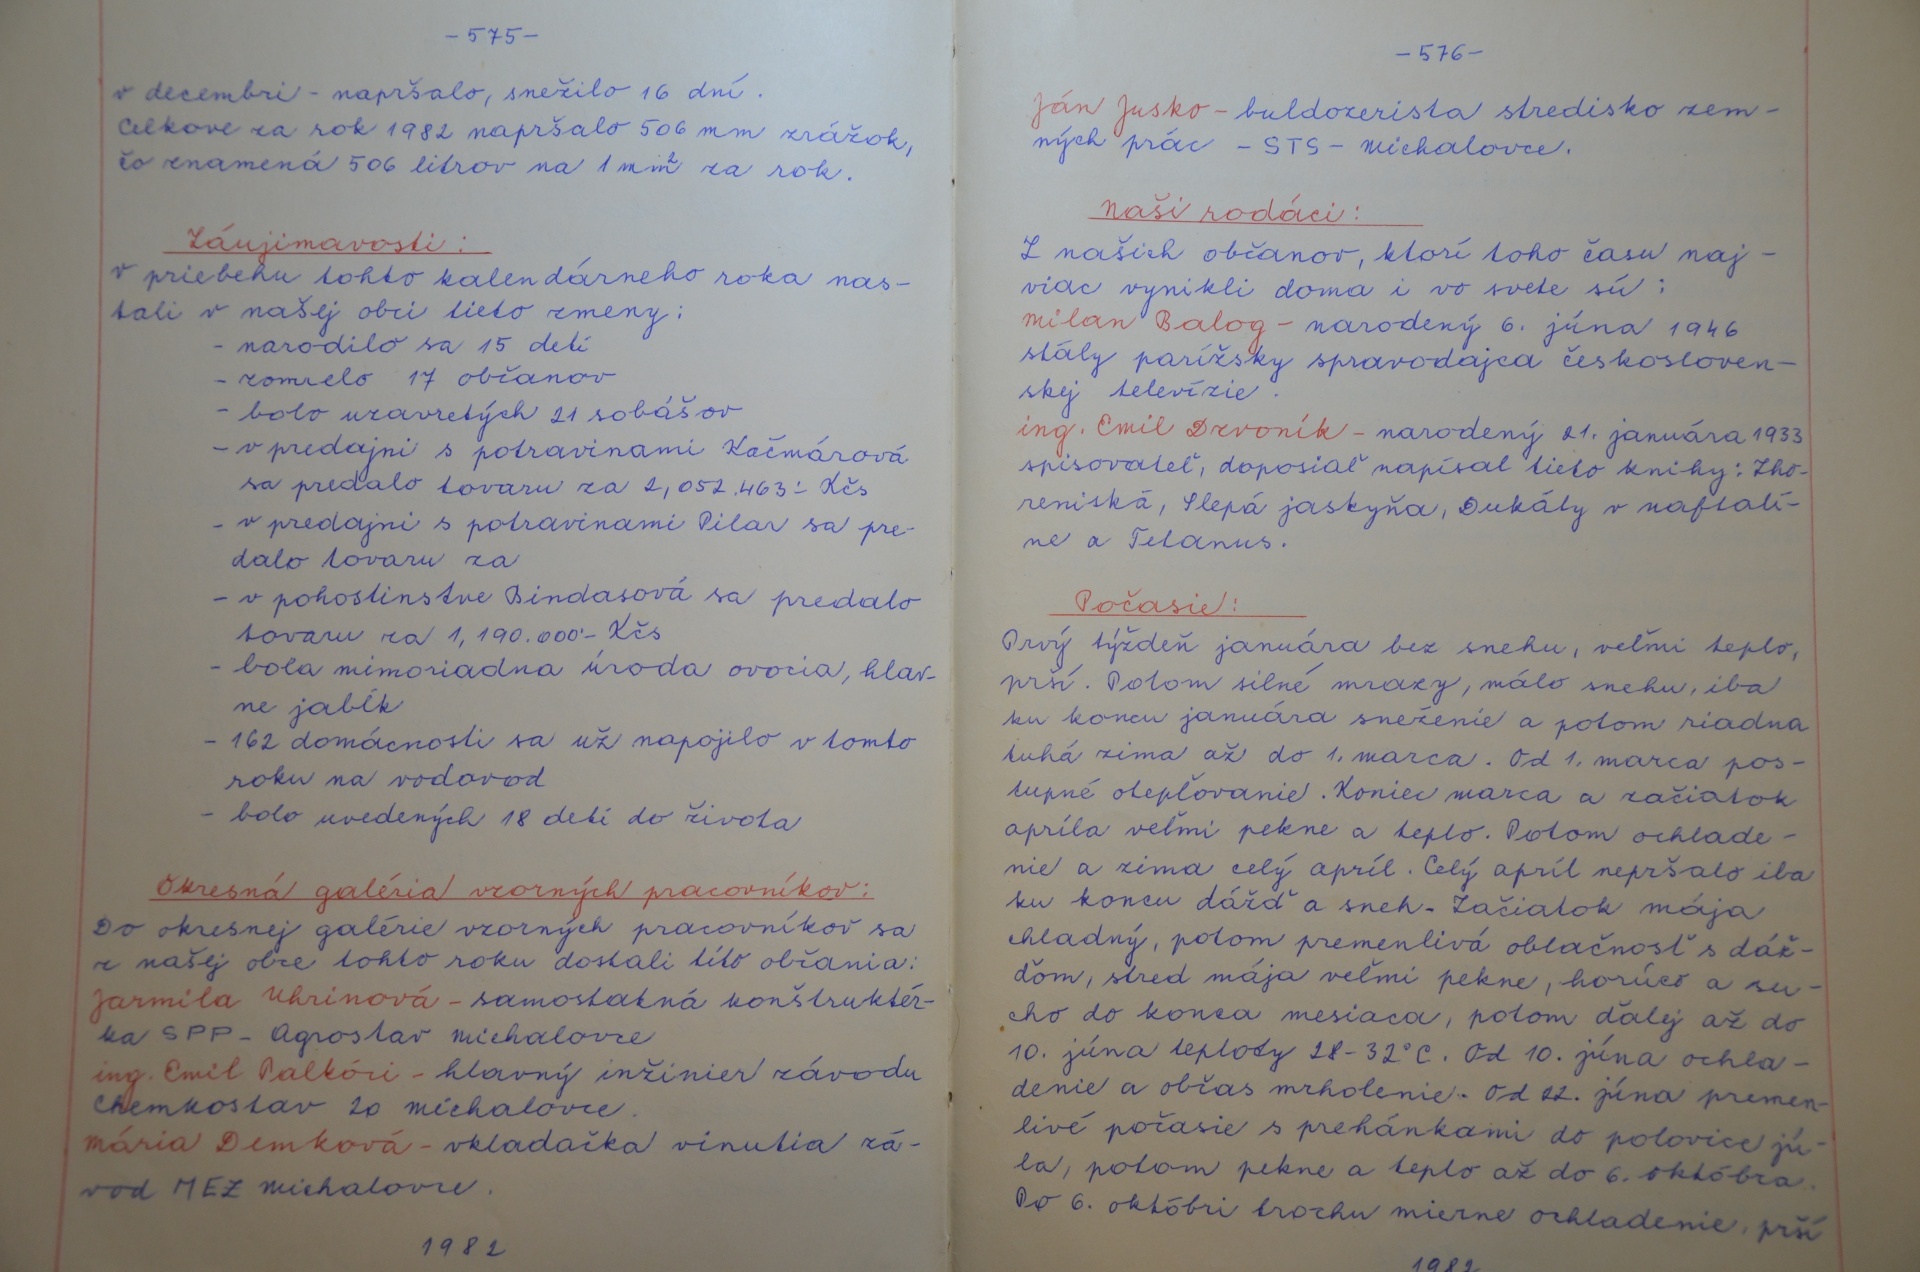 -575-
v decembri - napršalo, snežilo 16 dní.
Celkove za rok 1982 napršalo 506 mm zrážok,
čo znamená 506 litrov na 1 mm² za rok.
Záujimavosti:
V priebehu tohto kalendárneho roka nas-
tali v našej obci tieto zmeny:
- narodilo sa 15 detí
- zomrelo 17 občanov
- bolo uzavretých 21 sobášov
- v predajni s potravinami Kačmárová
sa predalo tovaru za 2,052.463'- Kčs
- v predajni s potravinami Pilar sa pre-
dalo tovaru za
- v pohostinstve Bindasová sa predalo
tovaru za 1,190.000'- Kčs
- bola mimoriadna úroda ovocia, hlav-
ne jabĺk
- 162 domácností sa už napojilo v tomto
roku na vodovod
- bolo uvedených 18 detí do života
Okresná galéria vzorných pracovníkov:
Do okresnej galérie vzorných pracovníkov sa
z našej obce tohto roku dostali títo občania:
Jarmila Uhrinová - samostatná konštruktér-
ka SPP - Agrostav Michalovce
ing. Emil Palkóci - hlavný inžinier závodu
Chemkostav 20 Michalovce.
Mária Demková - vkladačka vinutia zá-
vod MEZ Michalovce.
1982
-576-
Ján Jusko - buldozerista stredisko zem-
ných prác - STS - Michalovce.
Naši rodáci:
Z našich občanov, ktorí toho času naj-
viac vynikli doma i vo svete sú:
Milan Balog - narodený 6. júna 1946
stály parížsky spravodajca českosloven-
skej televízie.
ing. Emil Dzvoník - narodený 21. januára 1933
spisovateľ, doposiaľ napísal tieto knihy: Zho-
reniská, Slepá jaskyňa, Dukáty v naftalí-
ne a Tetanus.
Počasie:
Prvý týždeň januára bez snehu, veľmi teplo,
prší. Potom silné mrazy, málo snehu, iba
ku koncu januára sneženie a potom riadna
tuhá zima až do 1. marca. Od 1. marca pos-
tupné otepľovanie. Koniec marca a začiatok
apríla veľmi pekne a teplo. Potom ochlade-
nie a zima celý apríl. Celý apríl nepršalo iba
ku koncu dážď a sneh. Začiatok mája
chladný, potom premenlivá oblačnosť s dáž-
ďom, stred mája veľmi pekne, horúco a su-
cho do konca mesiaca, potom ďalej až do
10. júna teploty 28-32°C. Od 10. júna ochla-
denie a občas mrholenie. Od 22. júna premen-
livé počasie s prehánkami do polovice jú-
la, potom pekne a teplo až do 6. októbra.
Po 6. októbri trochu mierne ochladenie, prší
1982